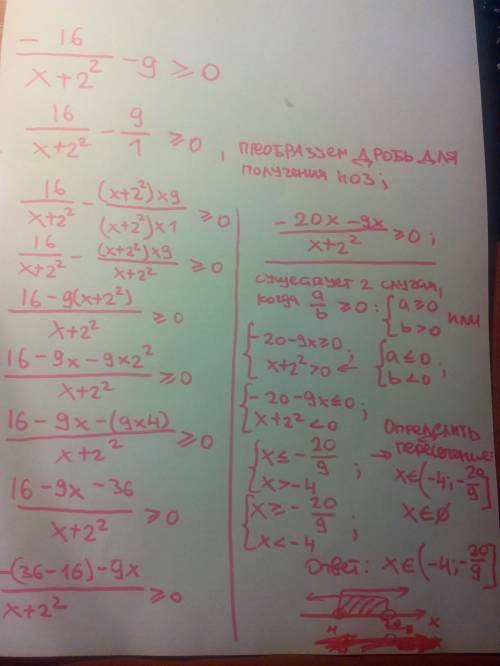 - 16 / x+2² - 9 ≥ 0
16 / x+2² - 9/1 ≥ 0, преобразуем дробь для
получения НОЗ;
16 / x+2² - (x+2²)×9 / (x+2²)×1 ≥ 0
16 / x+2² - (x+2²)×9 / x+2² ≥ 0
16 - 9(x+2²) / x+2² ≥ 0
16 - 9x - 9×2² / x+2² ≥ 0
16 - 9x - (9×4) / x+2² ≥ 0
16 - 9x - 36 / x+2² ≥ 0
-(36-16) - 9x / x+2² ≥ 0
- 20x - 9x / x+2² ≥ 0;
существует 2 случая,
когда a/b ≥ 0: { a ≥ 0 или
b > 0
{ -20-9x ≥ 0; { a ≤ 0
x+2² > 0 ← b < 0;
{ -20-9x ≤ 0;
x+2² < 0
Определить
{ x ≤ -20/9; → пересечение:
x > -4 x ∈ (-4; -20/9]
{ x ≥ -20/9; x ∈ ∅
x < -4
Ответ: x ∈ (-4; -20/9]
x